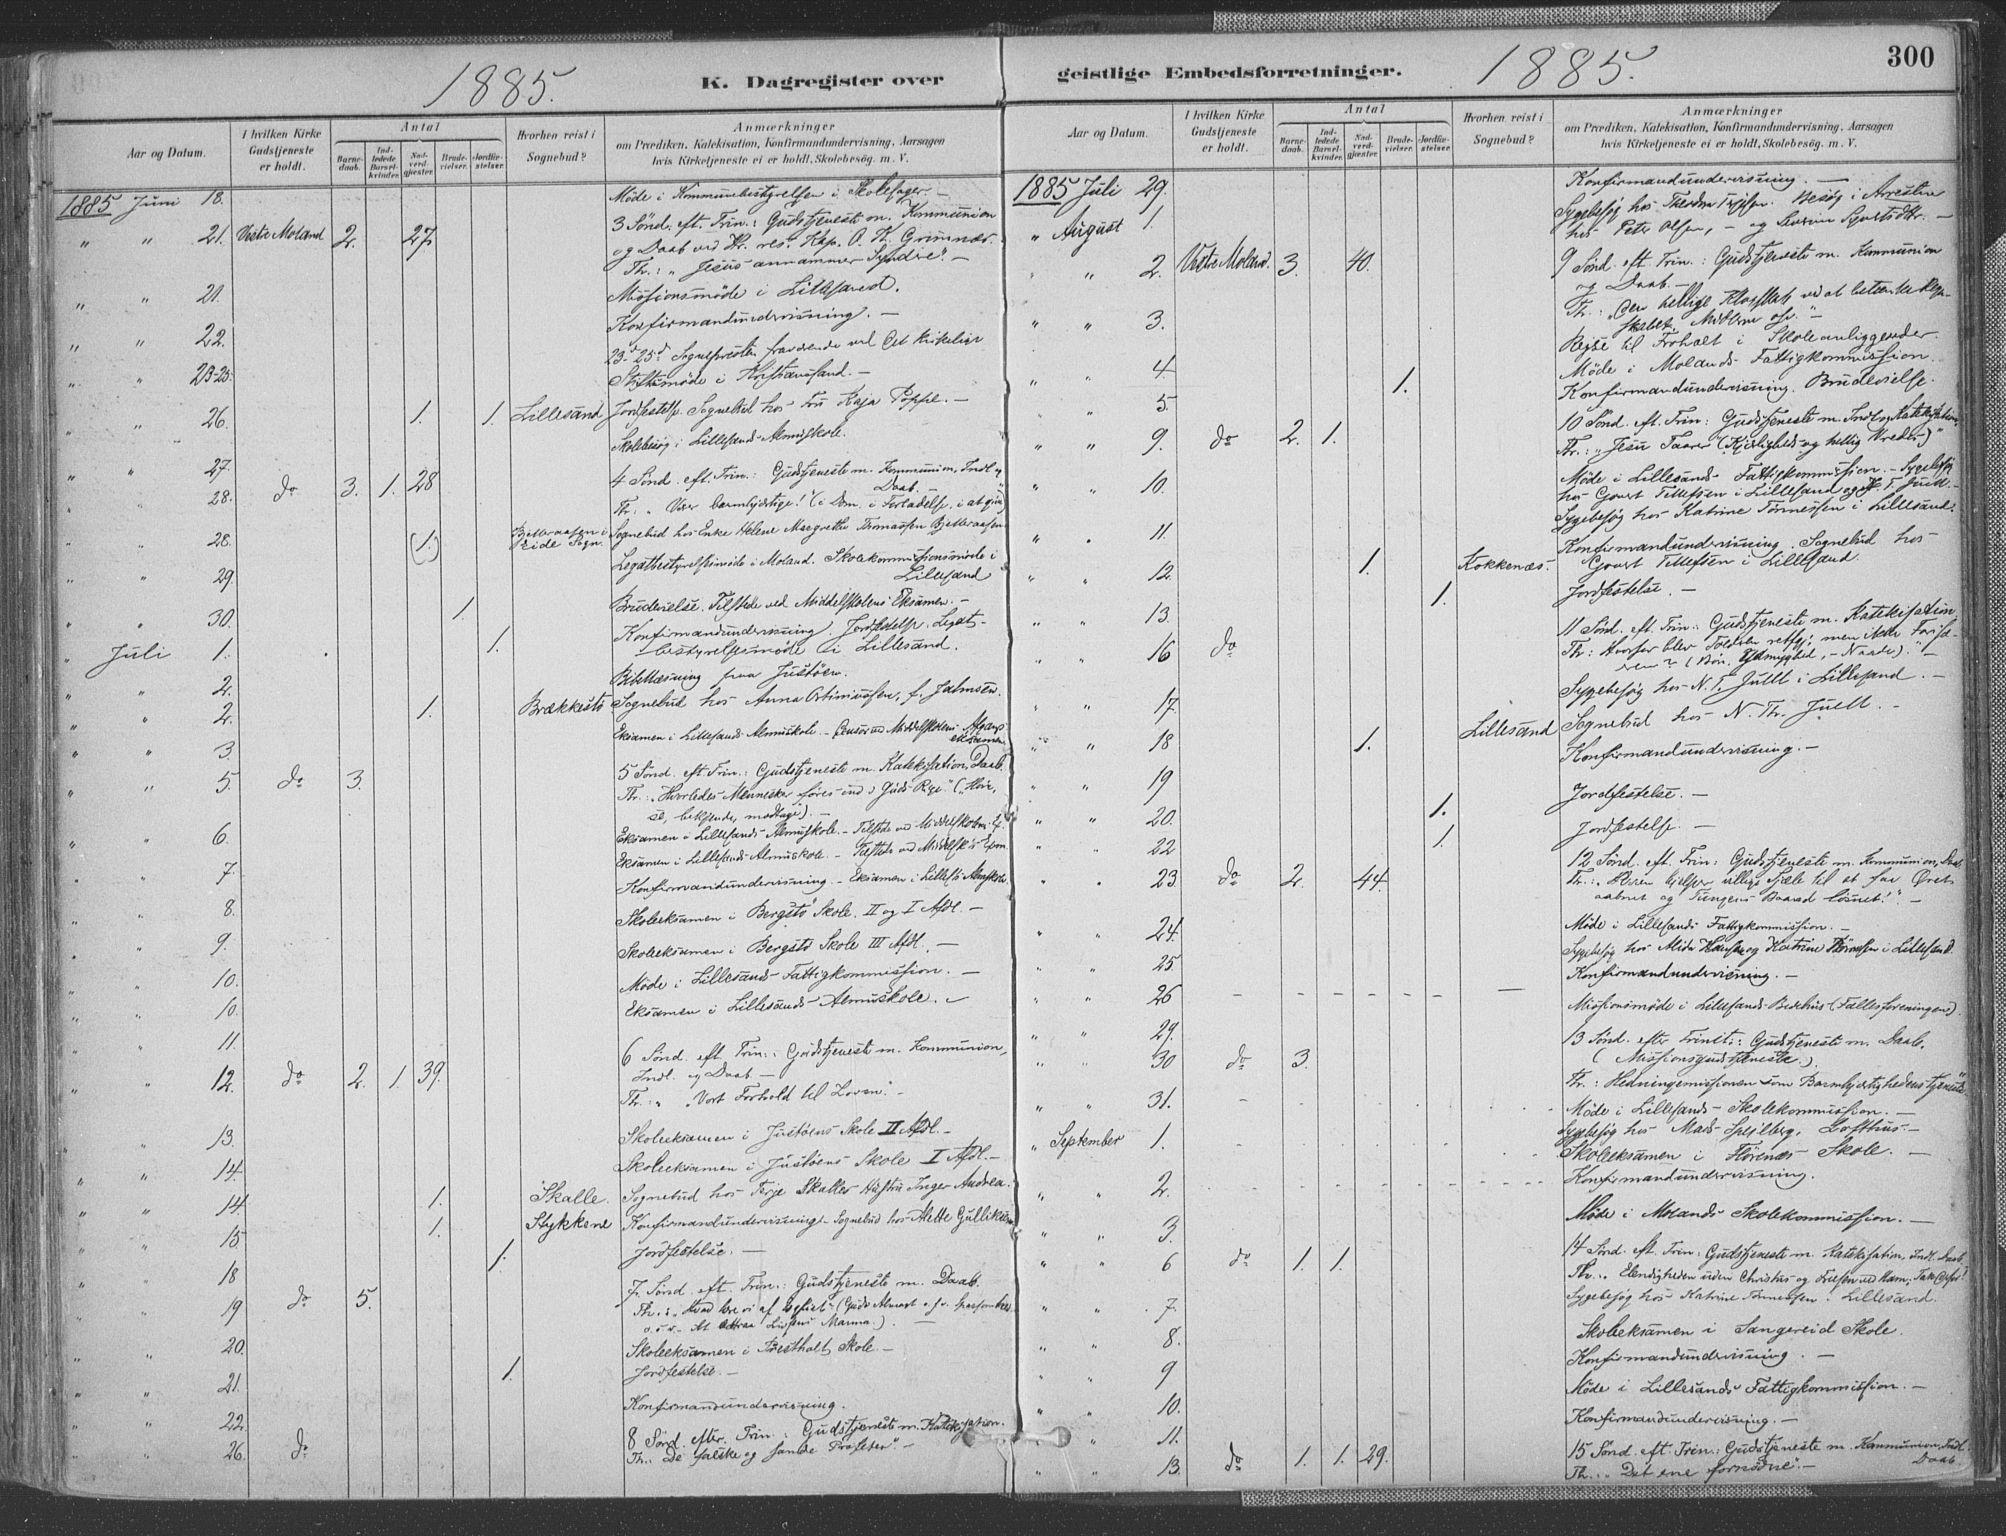 1885.
K. Dagregister over
Aar og Datum.
I hvilken Kirke Gudstjeneste er holdt.
Antal
Barnedaab.
Indledede Barselkvinder.
Nadverdgjester.
Brudevielser.
Jordfæstelser.
Hvorhen reist i Sognebud?
Anmærkninger
om Prædiken, Katekisation, Konfirmandundervisning, Aarsagen
hvis Kirketjeneste ei er holdt, Skolebesøg. m. V.
1885 Juni 18. Møde i Kommunebestyrelsen i Skolesager. —
" " 21. Vestre Moland 2. 27. 3 Sønd. eft. Trin.: Gudstjeneste m. Kommunion
og Daab ved Hr. res. Kap. O. K. Grimnæs.
Th.: "Jesus annammer Syndere". —
" " 21. Missionsmøde i Lillesand.
" " 22. Konfirmandundervisning. —
" " 23-25. 23d-25d Sognepresten fraværende ved Det kirkelige
Stiftsmøde i Kristiansand. —
" " 26. 1. 1. Lillesand Jordfestelse. Sognebud hos Kaja Poppe. —
" " 27. Skolebesøg i Lillesands Almuskole.
" " 28. do 3. 1. 28 4 Sønd. eft. Trin.: Gudstjeneste m. Kommunion, Indl. og
Daab. —
Th.: "Vær barmhjertige! (i Dom, i Forladelse, i at give)
" " 28. (1.) Sognebud hos Enke Helene Margrethe Thomassen
" " 29. Legatbestyrelsesmøde i Moland. Skolekommissionsmøde i
Lillesand
" " 30. 1. Brudevielse. Tilstede ved Middelskolens Eksamen. —
" Juli 1. 1. Konfirmandundervisning. Jordfestelse. Legat-
bestyrelsesmøde i Lillesand.
" " 2. Bibellæsning paa Justøen.
" " 2. 1. Brækkestø Sognebud hos Anna
" " 3. Eksamen i Lillesands Almuskole. — Censor ved Middelskolens Afgangs
eksamen
" " 5. do 3. 5 Sønd. eft. Trin.: Gudstjeneste m. Katekisation, Daab.
Th.: "Hvorledes Mennesker føres ind i Guds Rige" ("Høre,
se, bekjende, modtage). —
" " 6. Eksamen i Lillesands Almuskole. — Tilstede ved Middelskolens
" " 7. Eksamen i Lillesands Almuskole. — Tilstede ved Middelsk.s
" " 8. Konfirmandundervisning. — Eksamen i Lilles.s Almskole.
" " 9. Skoleeksamen i Bergstø Skole. II og I Afdl. —
" " 10. Skoleeksamen i Bergstø Skole III Afdl. —
" " 10. Møde i Lillesands Fattigkommission. —
" " 11. Eksamen i Lillesands Almuskole. —
" " 12. do 2. 1. 39. 6 Sønd. eft. Trin.: Gudstjeneste m. Kommunion,
Indl. og Daab —
Th.: "Vort Forhold til Loven". —
" " 13. Skoleeksamen i Justøens Skole II Afdl. —
" " 14. Skoleeksamen i Justøens Skole I Afdl. —
" " 14. 1. Skalle. Sognebud hos Terje Skalles Hustru Inger Andrea.
" " 15. 1. Stykkene Konfirmandundervisning — Sognebud hos Alette Gulliksen
" " 18 1. Jordfestelse. —
" " 19 do 5. 7. Sønd. eft. Trin.: Gudstjeneste m. Daab.
" " 20. Skoleeksamen i Skole. —
" " 21. 1. Jordfestelse. —
" " 22. Konfirmandundervisning.
" " 26. do 8 Sønd. efter Trin.: Gudstjeneste m. Katekisation.
Th.: De falske og sande Profeter". —
geistlige Embedsforretninger.
1885.
300
Aar og Datum.
I hvilken Kirke Gudstjeneste er holdt.
Antal
Barnedaab.
Indledede Barselkvinder.
Nadverdgjester.
Brudevielser.
Jordfæstelser.
Hvorhen reist i Sognebud?
Anmærkninger
om Prædiken, Katekisation, Konfirmandundervisning, Aarsagen
hvis Kirketjeneste ei er holdt, Skolebesøg. m. V.
1885 Juli 29. Konfirmandundervisning. —
" August 1. Sygebesøg hos Besøg i Arresten
hos Peter Olsen, — og
" " 2. Vestre Moland. 3. 40. 9 Sønd. eft. Trin.: Gudstjeneste m. Kommunion
og Daab. —
Th.: "Den hellige Klogskab ved at betænke Regn-
skabet, Midlerne osv." —
" " 3. Rejse til i Skoleanliggender.
" " 4. Møde i Molands Fattigkommission.
" " 5. 1. Konfirmandundervisning. Brudevielse.
" " 9. do 2. 1. 10 Sønd. eft. Trin.: Gudstjeneste m. Indl. og Katekisation.
Th.: "Jesu Taarer (Kjærligheds og hellig Vredes)"
" " 10. Møde i Lillesands Fattigkommission. — Sygebesøg
hos Govert Tellefsen i Lillesand og N. T. Juell. —
" " 11. Sygebesøg hos Katrine Tønnessen i Lillesand.
" " 12. 1. Kokkenæs. Konfirmandundervisning. Sognebud hos
Govert Tellefsen i Lillesand.
" " 13. 1. Jordfestelse. —
" " 16 do 11 Sønd. eft. Trin.: Gudstjeneste m. Katekisation
Th.: Hvorfor blev Tolderen retfg., men ikke Farisæ-
eren? (Bøn, Ydmyghed, — Naade)." —
" " 17. Sygebesøg hos N. T. Juell i Lillesand. —
" " 18 1. Lillesand Sognebud hos N. Th. Juell. —
" " 19 Konfirmandundervisning. —
" " 20. 1. Jordfestelse. —
" " 22 1. Jordfestelse. —
" " 23. do 2. 44. 12 Sønd. eft. Trin.: Gudstjeneste m. Kommunion, Daab
Th.: "Herren hjelper villige Sjæle til at faa Øret
aabnet og Tungens Baand løsnet!". —
" " 24. Møde i Lillesands Fattigkommission. —
" " 25. Sygebesøg hos og Katrine Tønnessen i Lillesand.
" " 26 Konfirmandundervisning. —
" " 29. Missionsmøde i Lillesands Bedehus (Fællesforeningen).
" " 30 do 3. 13 Sønd. efter Trinit.: Gudstjeneste m. Daab.
(Missionsgudstjeneste.)
Th.: Hedningemissionen som Barmhjertighedens tjeneste"
" " 31. Møde i Lillesands Skolekommission. —
" September 1. Sygebesøg hos Mads Spejlberg, Lofthus —
Skoleeksamen i Hørenes Skole. —
" " 2. Konfirmandundervisning.
" " 3. Møde i Molands Skolekommission. —
" " 6 do 1. 1. 14 Sønd. eft. Trin.: Gudstjeneste m. Katekisation, Indl. Daab
Th.: "Elendigheden uden Christus og Frelsen ved Ham,
" " 7. Sygebesøg hos Katrine Tønnessen. Lillesand.
" " 8. Skoleeksamen i Sangereid Skole.
" " 9 Konfirmandundervisning. —
" " 10. Møde i Lillesands Fattigkommission. —
" " 11. Konfirmandundervisning. —
" " 13. do 1. 1. 29. 15 Sønd. eft. Trin.: Gudstjeneste m. Kommunion, Indl.
Daab.
Th.: "Det ene fornødne". —